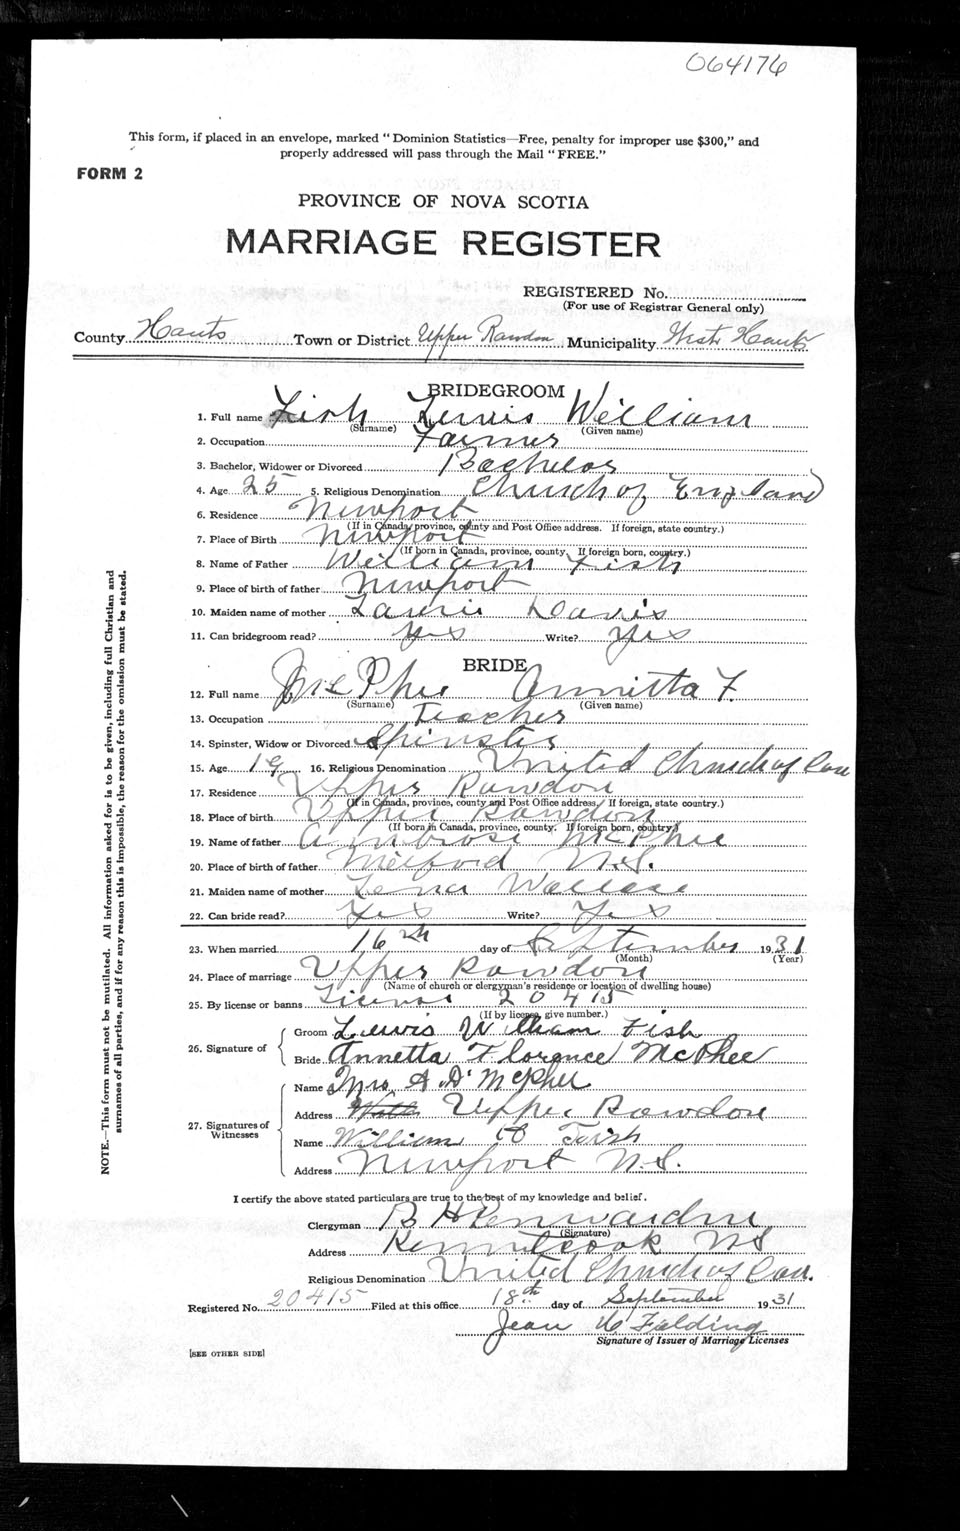 064176
This form, if placed in an envelope, marked "Dominion Statistics—Free, penalty for improper use $300," and
properly addressed will pass through the Mail "FREE."
FORM 2
PROVINCE OF NOVA SCOTIA
MARRIAGE REGISTER
REGISTERED No.
(For use of Registrar General only)
County Hants Town or District Upper Rawdon Municipality West Hants
BRIDEGROOM
1. Full name Fish Lewis William
(Surname) (Given name)
2. Occupation Farmer
3. Bachelor, Widower or Divorced Bachelor
4. Age 25 5. Religious Denomination Church of England
6. Residence Newport
(If in Canada, province, county and Post Office address. If foreign, state country.)
7. Place of Birth Newport
(If born in Canada, province, county. If foreign born, country.)
8. Name of Father William Fish
9. Place of birth of father Newport
10. Maiden name of mother Davis
11. Can bridegroom read? Yes Write? Yes
BRIDE
12. Full name McPhee Annetta F.
(Surname) (Given name)
13. Occupation Teacher
14. Spinster, Widow or Divorced Spinster
15. Age 19 16. Religious Denomination United Church of Can
17. Residence Upper Rawdon
(If in Canada, province, county and Post Office address. If foreign, state country.)
18. Place of birth Upper Rawdon
(If born in Canada, province, county. If foreign born, country.)
19. Name of father Ambrose McPhee
20. Place of birth of father Milford N.S.
21. Maiden name of mother Lena Wallace
22. Can bride read? Yes Write? Yes
23. When married 16th day of September 1931
(Month) (Year)
24. Place of marriage Upper Rawdon
(Name of church or clergyman's residence or location of dwelling house)
25. By license or banns License 20415
(If by license, give number.)
26. Signature of Groom Lewis William Fish
Bride Annetta Florence McPhee
27. Signatures of Witnesses Name Mrs. A. D. McPhee
Address Upper Rawdon
Name William H Fish
Address Newport N.S.
I certify the above stated particulars are true to the best of my knowledge and belief.
Clergyman B H
(Signature)
Address Kennetcook NS
Religious Denomination United Church of Can.
Registered No. 20415 Filed at this office 18th day of September 1931
Jean Falding
Signature of Issuer of Marriage Licenses
[SEE OTHER SIDE]
NOTE.—This form must not be mutilated. All information asked for is to be given, including full Christian and
surnames of all parties, and if for any reason this is impossible, the reason for the omission must be stated.